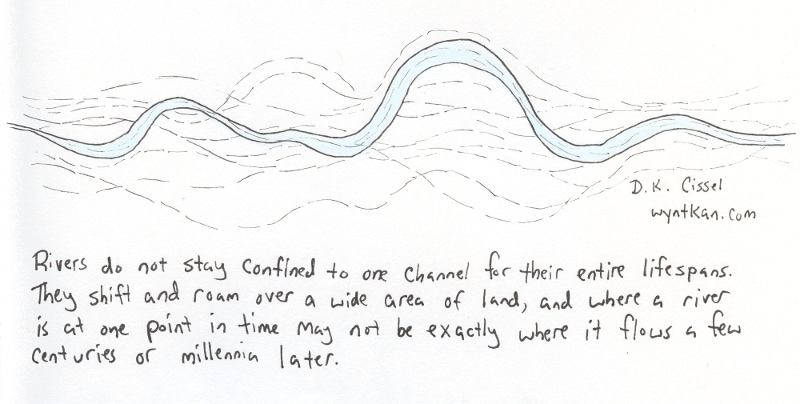 D.K. Cissel
wyntkan.com
Rivers do not stay confined to one channel for their entire lifespans.
They shift and roam over a wide area of land, and where a river
is at one point in time may not be exactly where it flows a few
centuries or millennia later.